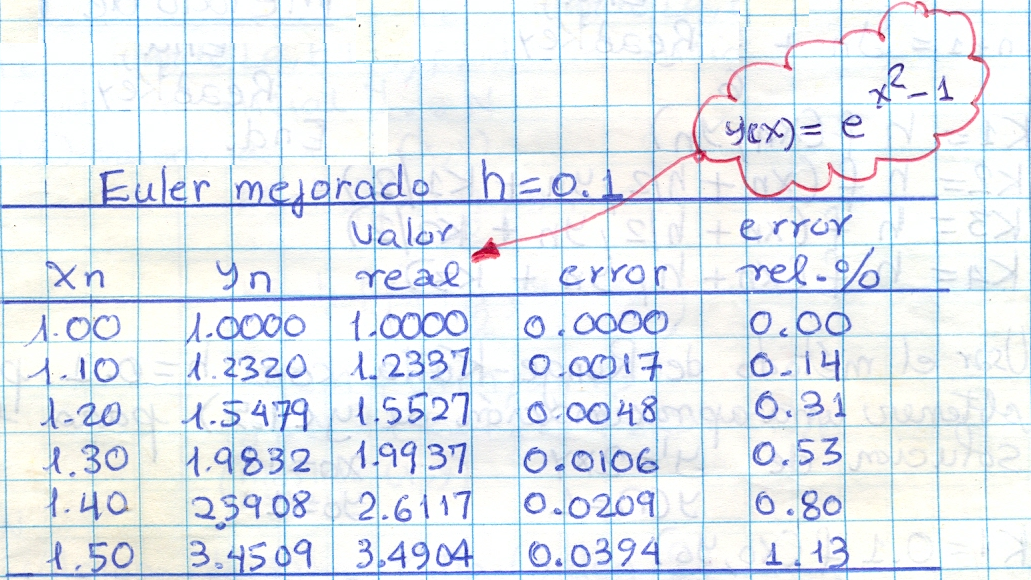 y(x) = e^x²-1
Euler mejorado h = 0.1
Xn yn valor real error error rel. %
1.00 1.0000 1.0000 0.0000 0.00
1.10 1.2320 1.2337 0.0017 0.14
1.20 1.5479 1.5527 0.0048 0.31
1.30 1.9832 1.9937 0.0106 0.53
1.40 2.5908 2.6117 0.0209 0.80
1.50 3.4509 3.4904 0.0394 1.13